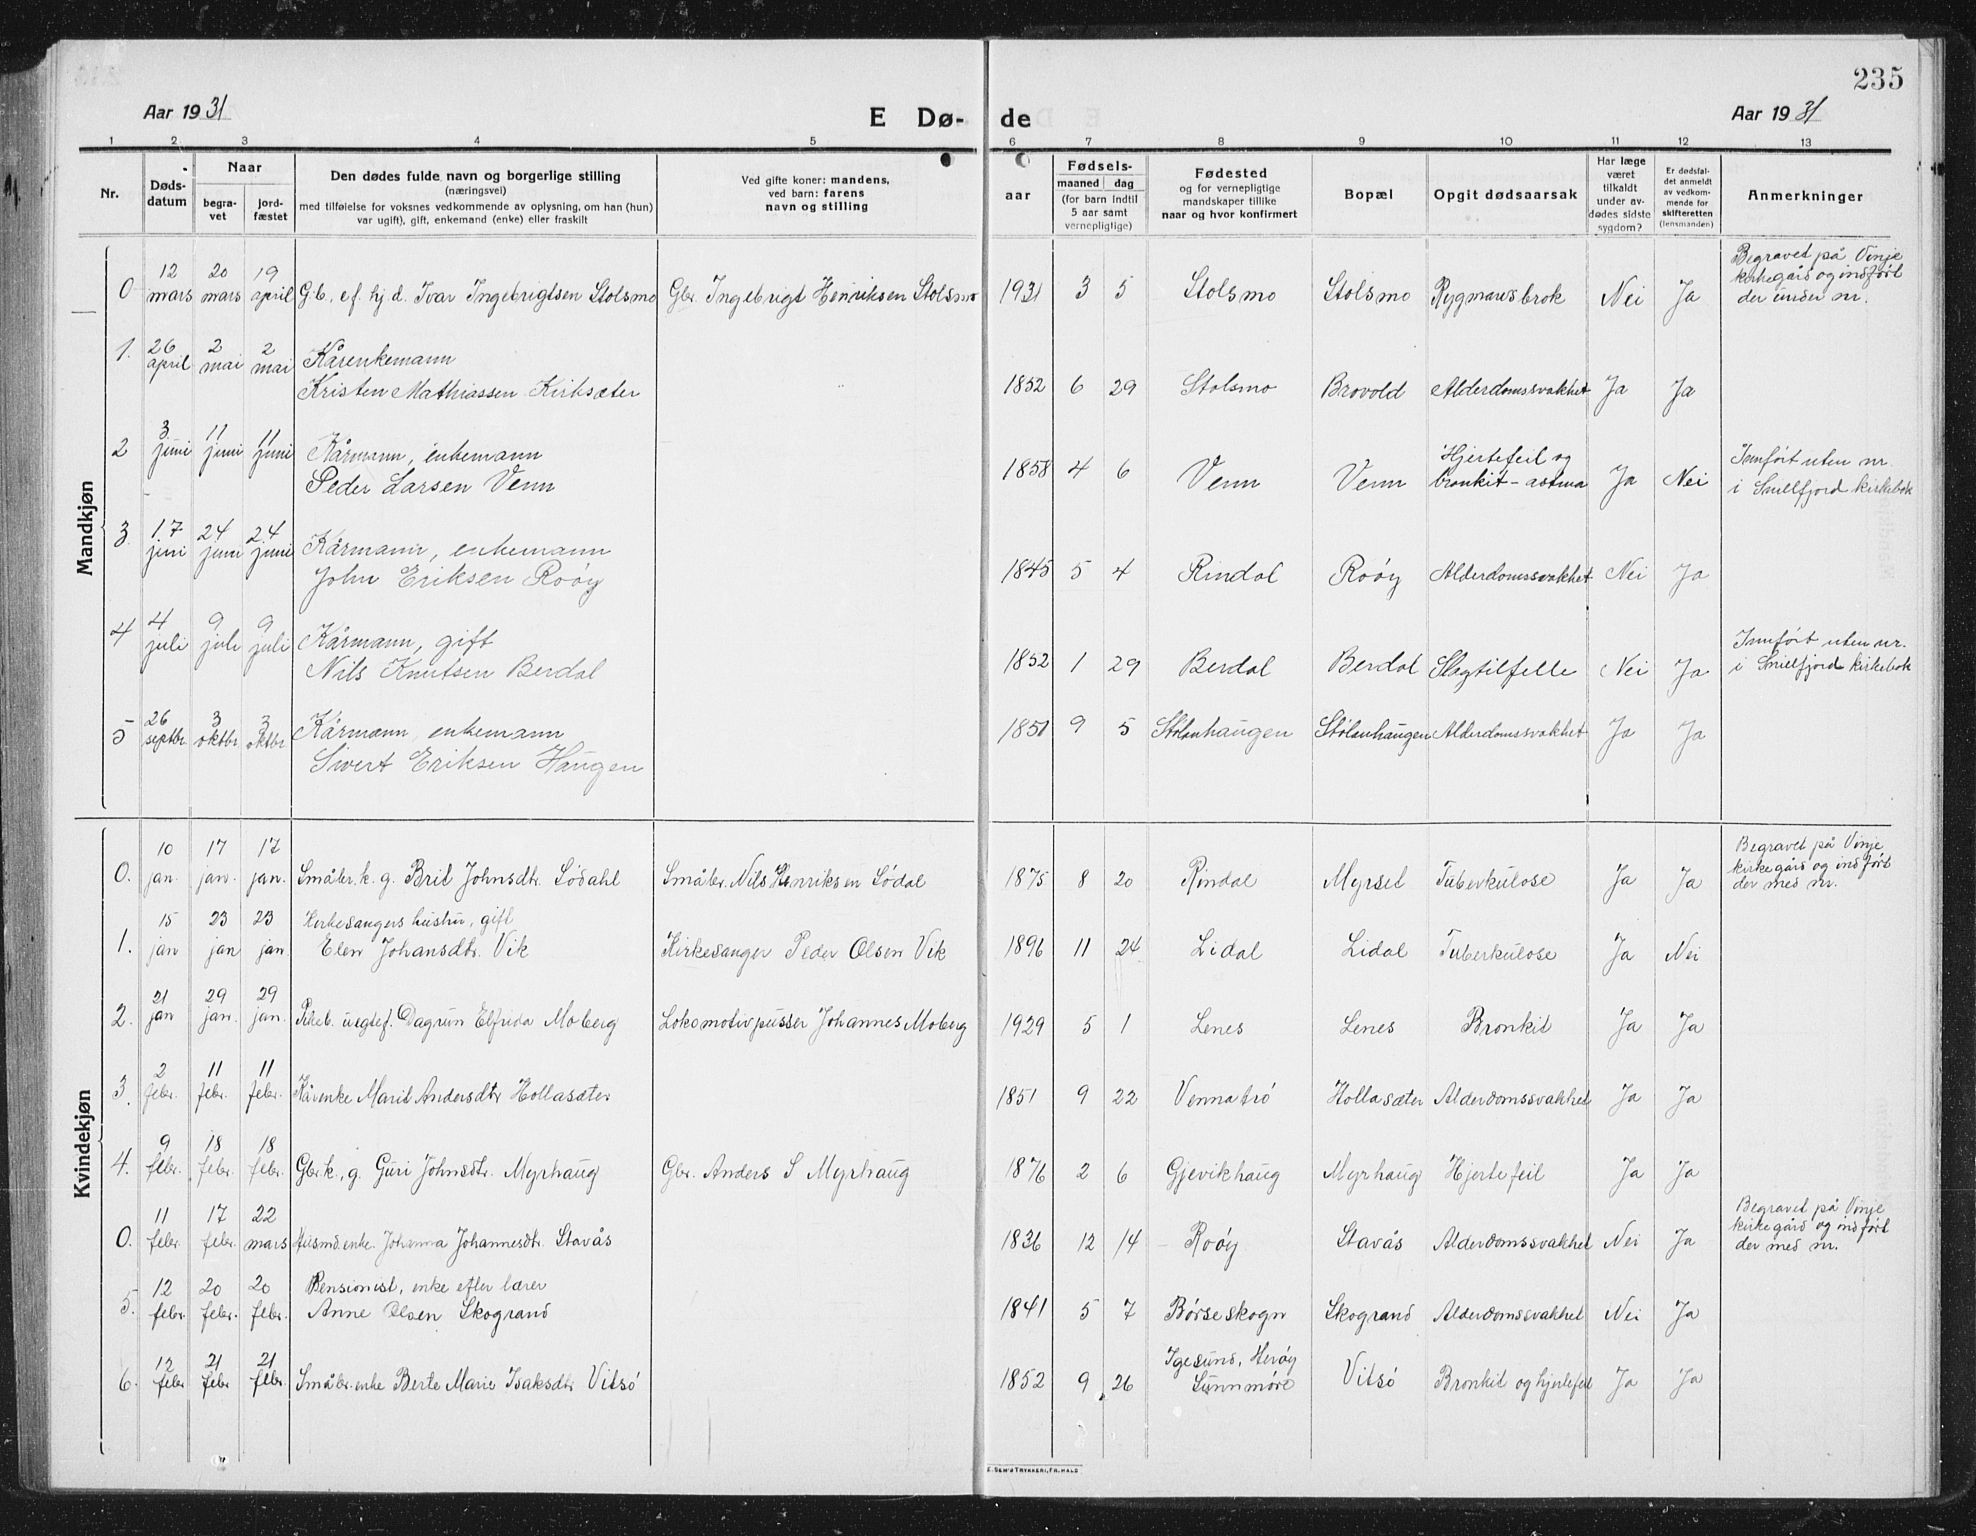 235
Aar 1931 E Dø- de Aar 1931
1 2 3 4 5 6 7 8 9 10 11 12 13
Nr. Dødsdatum Naar begravet jordfæstet Den dødes fulde navn og borgerlige stilling (næringsvei) med tilføielse for voksnes vedkommende av oplysning, om han (hun) var ugift), gift, enkemand (enke) eller fraskilt Ved gifte koner: mandens, ved barn: farens navn og stilling Fødsels- aar maaned dag (for barn indtil 5 aar samt vernepligtige) Fødested og for vernepligtige mandskaper tillike naar og hvor konfirmert Bopæl Opgit dødsaarsak Har læge været tilkaldt under avdødes sidste sygdom? Er dødsfaldet anmeldt av vedkommende for skifteretten (lensmanden) Anmerkninger
Mandkjøn
0 12 mars 20 mars 19 april G.b. ef. hj.d. Ivar Ingebrigtsen Stolsmo Gbr. Ingebrigt Henriksen Stolsmo 1931 3 5 Stolsmo Stolsmo Rygmarvsbrok Nei Ja Begravet på Vinje kirkegård og indført der under nr.
1. 26 april 2 mai 2 mai Kårenkemann
Kristen Mathiassen Kirksæter 1852 6 29 Stolsmo Brovold Alderdomssvakhet Ja Ja
2 3 juni 11 juni 11 juni Kårmann, enkemann
Peder Larsen Venn 1858 4 6 Venn Venn Hjertefeil og bronkit-astma Ja Nei Innført uten nr. i Snillfjord kirkebok
3 17 juni 24 juni 24 juni Kårmann, enkemann
John Eriksen Roøy 1845 5 4 Rindal Roøy Alderdomssvakhet Nei Ja
4 4 juli 9 juli 9 juli Kårmann, gift
Nils Knutsen Berdal 1852 1 29 Berdal Berdal Slagtilfelle Nei Ja Innført uten nr. i Snillfjord kirkebok
5 26 septbr. 3 oktbr. 3 oktbr. Kårmann, enkemann
Sivert Eriksen Haugen 1851 9 5 Stølanhaugen Stølanhaugen Alderdomssvakhet Ja Ja
Kvindekjøn
0. 10 jan. 17 jan. 17 jan. Småbr.k. g. Brit Johnsdtr. Sødahl Småbr. Nils Henriksen Sødal 1875 8 20 Rindal Myrset Tuberkulose Ja Ja Begravet på Vinje kirkegård og indført der med nr.
1. 15 jan 23 jan 23 jan. Kirkesangers hustru, gift
Elen Johansdtr. Vik Kirkesanger Peder Olsen Vik 1896 11 24 Lidal Lidal Tuberkulose Ja Nei
2. 21 jan 29 jan. 29 jan. Pikeb. uegtef. Dagrun Elfrida Moberg Lokomotivpusser Johannes Moberg 1929 5 1 Lenes Lenes Bronkit Ja Ja
3. 2 febr. 11 febr. 11 febr. Kårenke Marit Andersdtr Hollasæter 1851 9 22 Vennatrø Hollasæter Alderdomssvakhet Ja Ja
4. 9 febr. 18 febr. 18 febr. Gbr.k., g. Guri Johnsdtr. Myrhaug Gbr. Anders S Myrhaug 1876 2 6 Gjevikhaug Myrhaug Hjertefeil Ja Ja
0. 11 febr. 17 febr. 22 mars Husmd.enke. Johanna Johannesdtr. Stavås 1836 12 14 Roøy Stavås Alderdomssvakhet Nei Ja Begravet på Vinje kirkegård og indført der med nr.
5. 12 febr. 20 febr. 20 febr. Pensionist, enke efter lærer
Anne Olsen Skogrand 1841 5 7 Børseskogn Skogrand Alderdomssvakhet Nei Ja
6. 12 febr 21 febr 21 febr. Småbr.enke Berte Marie Isaksdtr Vitsø 1852 9 26 Igesund, Herøy Sunnmøre Vitsø Bronkit og hjertefeil Ja Ja
E. SEM'S TRYKKERI, FR.HALD